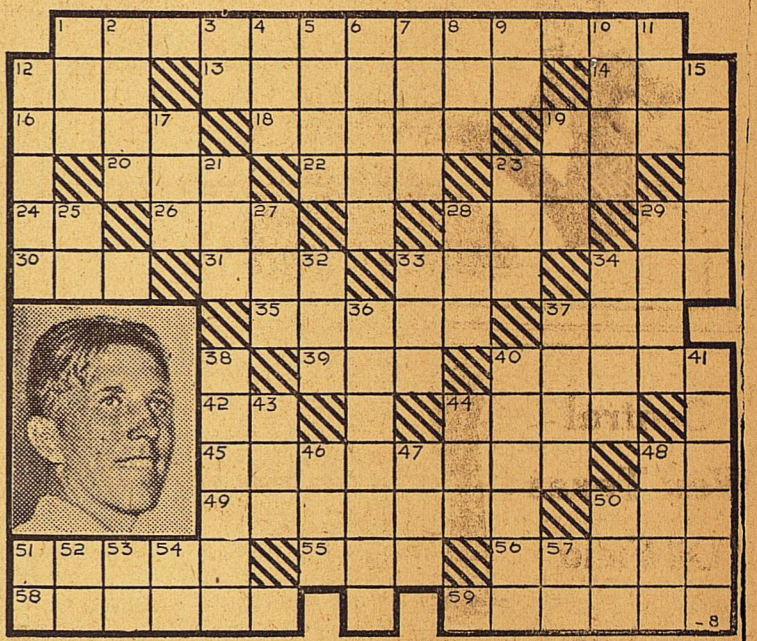 1 2 3 4 5 6 7 8 9 10 11
12 13 14 15
16 17 18 19
20 21 22 23
24 25 26 27 28 29
30 31 32 33 34
35 36 37
38 39 40 41
42 43 44
45 46 47 48
49 50
51 52 53 54 55 56 57
58 59 -8